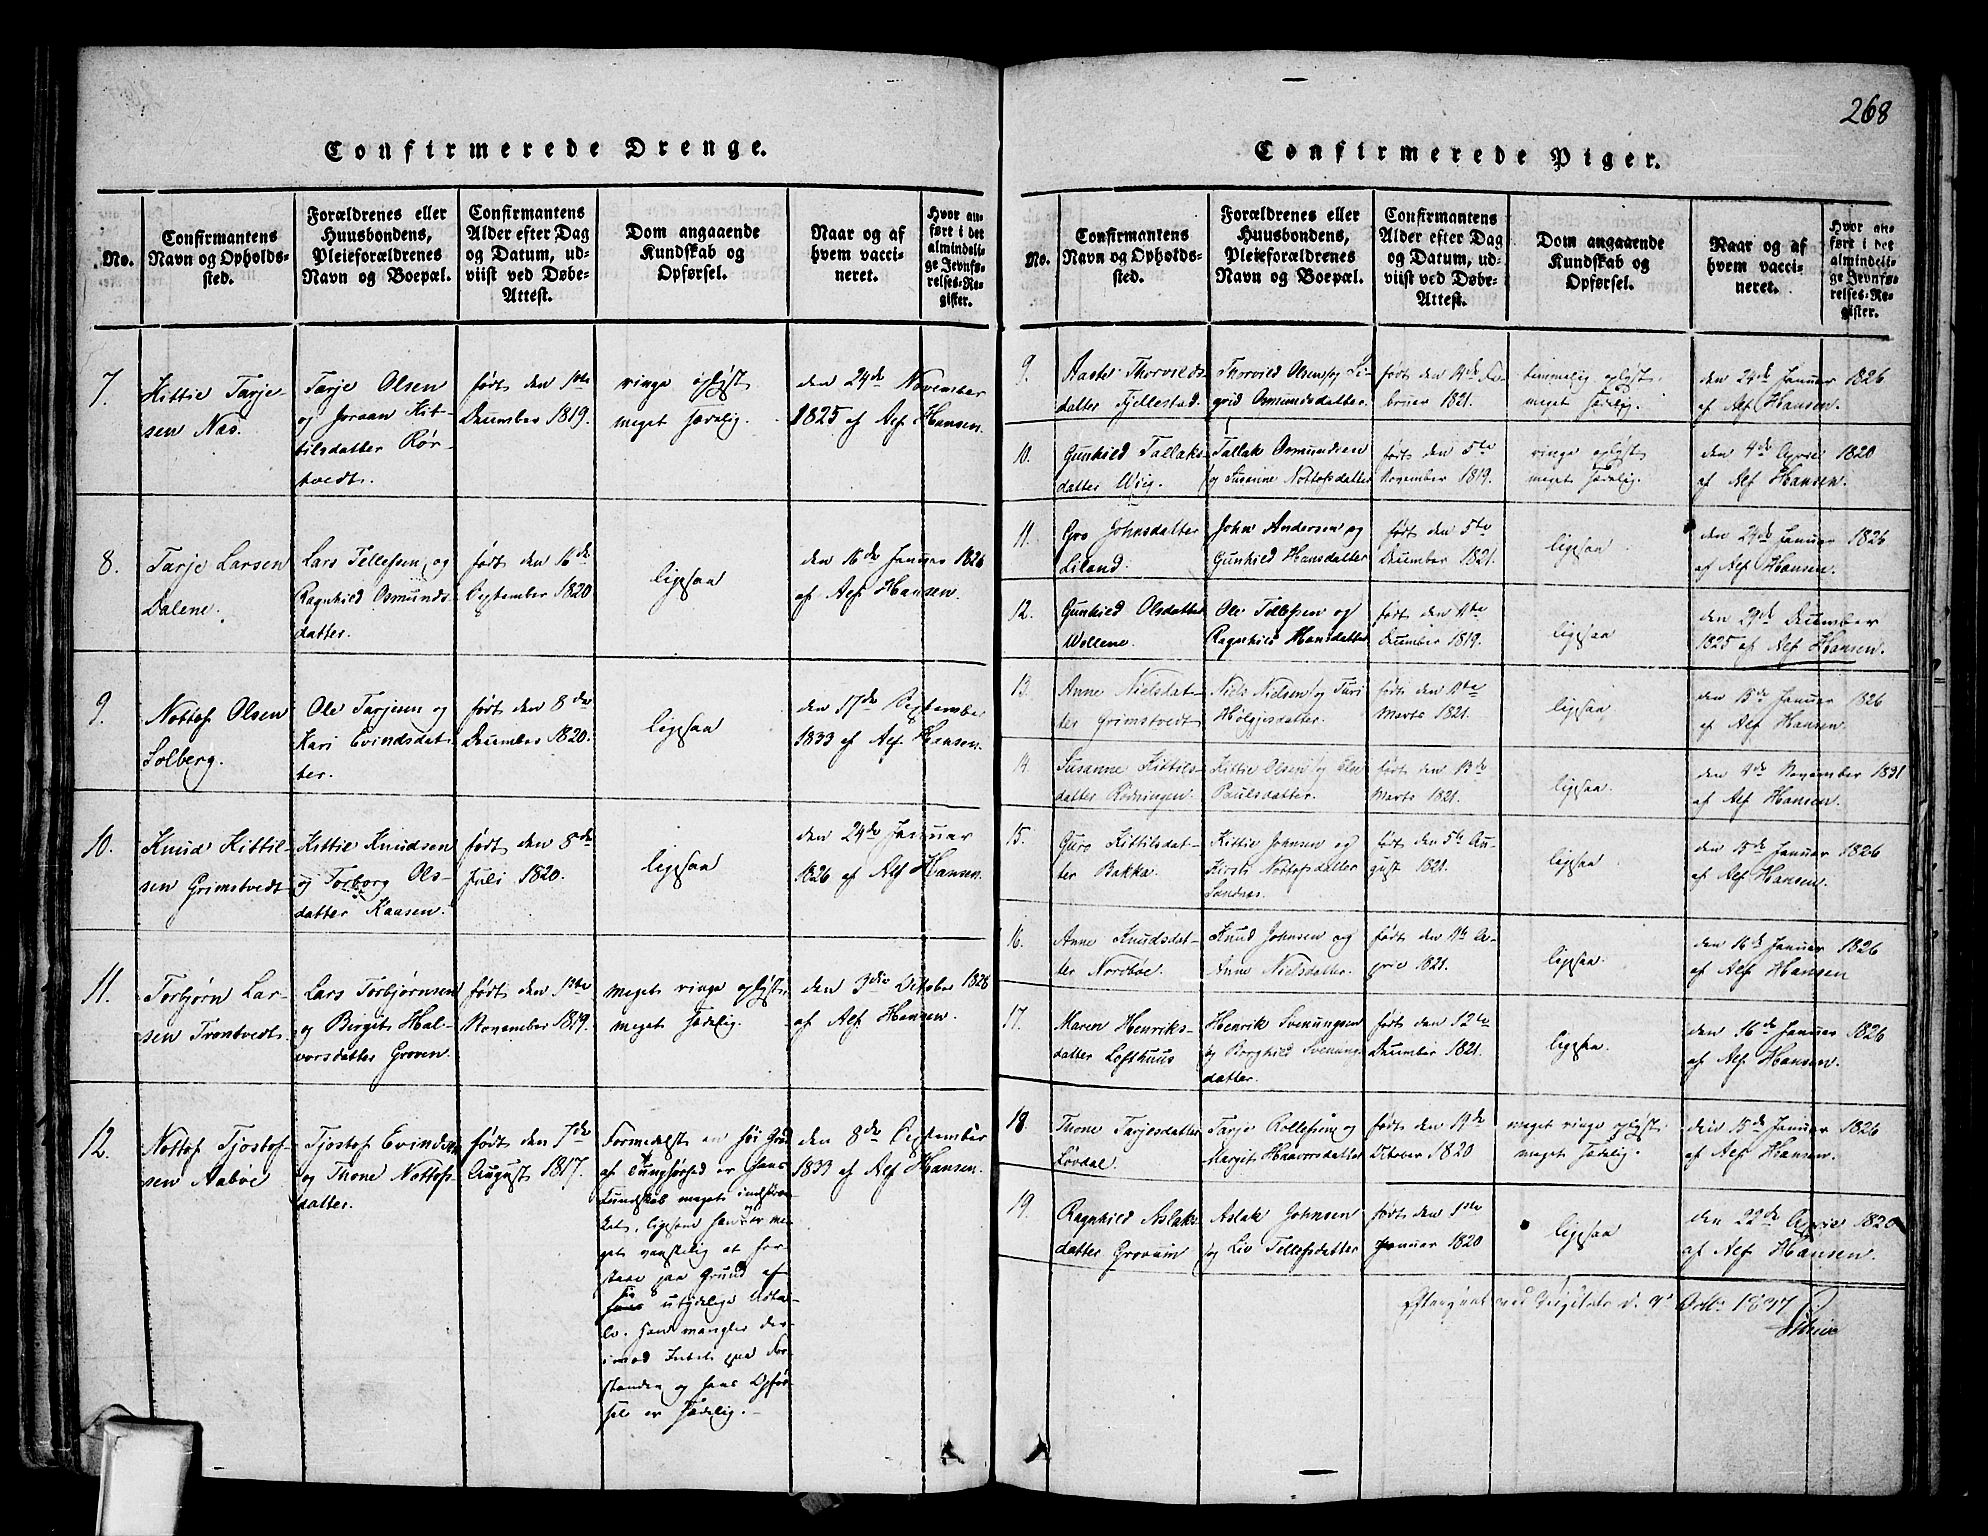 268
Confirmerede Drenge.
No.
Confirmantens
Navn og Opholds-
sted.
Forældrenes eller
Huusbondens,
Pleieforældrenes
Navn og Boepæl.
Confirmantens
Alder efter Dag
og Datum, ud-
viist ved Døbe-
Attest.
Dom angaaende
Kundskab og
Opførsel.
Naar og af
hvem vacci-
neret.
Hvor an-
ført i det
almindeli-
ge Jevnfø-
relses-Re-
gister.
7.
Kittil Tarje-
sen Næs.
Tarje Olsen
og Joraan Kit-
tilsdatter Rør-
tvedt.
født den 1ste
December 1819.
ringe oplyst
meget sædelig.
den 24de November
1825 af Alf Hansen.
8.
Tarje Larsen
Dalene.
Lars Tellefsen og
Ragnhild Osmunds-
datter.
født den 16de
September 1820
ligesaa
den 16de Januar 1826
af Alf Hansen.
9.
Nottof Olsen
Solberg.
Ole Tarjesen og
Kari Evindsdat-
ter.
født den 8de
December 1820.
ligesaa
den 17de September
1833 af Alf Hansen.
10.
Knud Kittil-
sen Grimstvedt
Kittil Knudsen
og Torborg Ols-
datter Kaasen.
født den 8de
Juli 1820.
ligesaa
den 24de Januar
1826 af Alf Hansen.
11.
Torbjørn Lar-
sen Trontvedt.
Lars Torbjørnsen
og Birgit Hal-
vorsdatter Groven.
født den 1ste
November 1819.
meget ringe oplyst,
meget sædelig.
den 3die Oktober 1828
af Alf Hansen.
12.
Nottof Tjostof-
sen Aabøe
Tjostof Evindsen
og Thone Nottofs-
datter.
født den 7de
August 1817.
Formedelst en høi Grad
af Tunghørhed er hans
Kundskab meget indskræn-
ket, ligesom han og er me-
get vanskelig at for-
staae paa Grund af
sin utydelige Udta-
le. Han mangler des-
imod Intet paa For-
standen og hans Opfør-
sel er sædelig.
den 8de September
1833 af Alf Hansen.
Confirmerede Piger.
No.
Confirmantens
Navn og Opholds-
sted.
Forældrenes eller
Huusbondens,
Pleieforældrenes
Navn og Boepæl.
Confirmantens
Alder efter Dag
og Datum, ud-
viist ved Døbe-
Attest.
Dom angaaende
Kundskab og
Opførsel.
Naar og af
hvem vacci-
neret.
Hvor an-
ført i det
almindeli-
ge Jevnfø-
relses-Re-
gister.
9.
Aaste Thorvilds-
datter Fjellestad.
Thorvild Olsen og Li-
grid Osmundsdatter.
født den 4de Fe-
bruar 1821.
temmelig oplyst,
meget sædelig.
den 24de Januar 1826
af Alf Hansen.
10.
Gunhild Tallaks-
datter Wiig.
Tallak Osmundsen
og Susanne Nottofsdatter
født den 5te
November 1819.
ringe oplyst
meget sædelig.
den 4de April 1820
af Alf Hansen.
11.
Gro Johnsdatter
Liland.
John Andersen og
Gunhild Hansdatter
født den 5te
December 1821.
ligesaa
den 24de Januar 1826
af Alf Hansen.
12.
Gunhild Olsdatter
Wollene.
Ole Tellefsen og
Ragnhild Hansdatter
født den 11te
December 1819.
ligesaa
den 29de December
1825 af Alf Hansen.
13.
Anne Nielsdat-
ter Grimstvedt
Niels Nielsen og Turi
Helgjesdatter.
født den 11te
Marts 1821.
ligesaa
den 15de Januar 1826
af Alf Hansen.
14.
Susanne Kittils-
datter Rødningen.
Kittil Olsen og Else
Paulsdatter.
født den 13de
Marts 1821.
ligesaa.
November 1831
af Alf Hansen.
15.
Guro Kittilsdat-
ter Bakka.
Kittil Johnsen og
Kirsti Nottofsdatter
Landnæs.
født den 5te Au-
gust 1821.
ligesaa.
den 15de Januar 1826
af Alf Hansen.
16.
Anne Knudsdat-
ter Nordbøe.
Knud Johnsen og
Anne Nielsdatter.
født den 11te A-
pril 1821.
ligesaa.
den 16de Januar 1826
af Alf Hansen
17.
Maren Henriks-
datter Lofthuus
Henrik Svenungsen
og Borghild Svenungs-
datter.
født den 12te
December 1821.
ligesaa.
den 16de Januar 1826
af Alf Hansen.
18.
Thone Tarjesdatter
Løvdal.
Tarje Rollefsen og
Margit Haavorsdatter
født den 19de
October 1820
meget ringe oplyst,
meget sædelig.
den 15de Januar 1826
af Alf Hansen.
19.
Ragnhild Aslaks-
datter Grovum
Aslak Johnsen
og Liv Tellefsdatter
født den 1ste
Januar 1820
ligesaa
den 22de April 1820
af Alf Hansen.
Eftergaaet ved Visitats d. 9de Octbr 1837